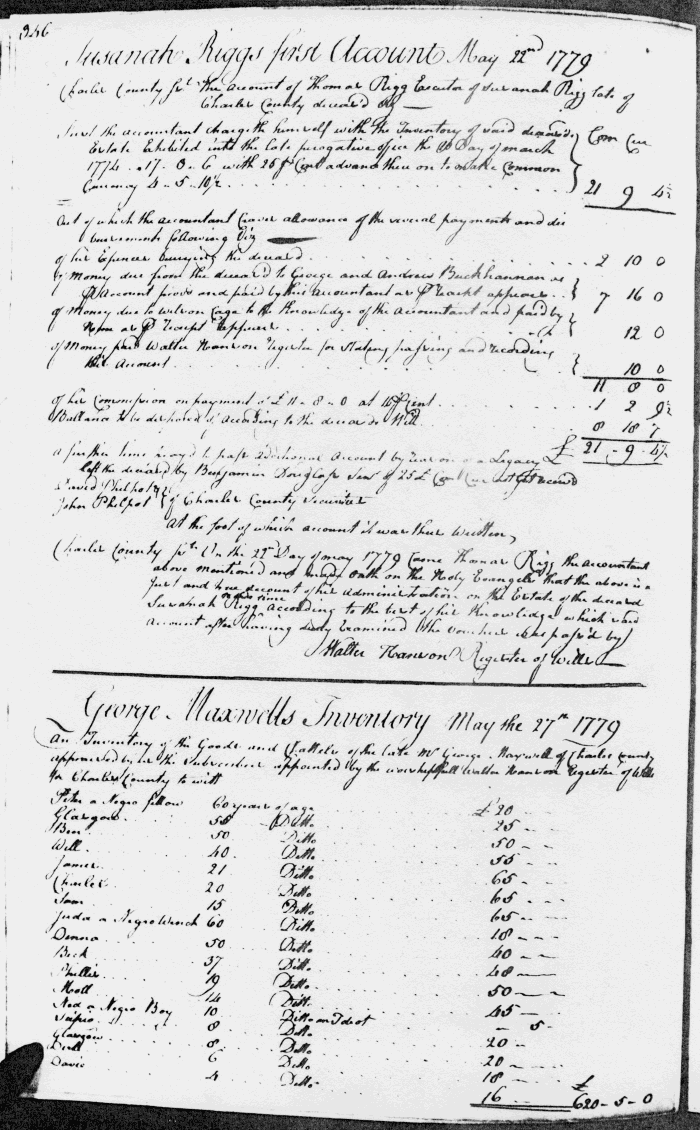 346
Susanah Riggs first Account May 22nd 1779
Charles County Sst. The Account of Thomas Rigg Executor of Susanah Rigg late of
Charles County deceas'd
First the accountant chargeth himself with the Inventory of said deceased's
Estate Exhibited into the late prerogative office the Day of march
1774. 17. 0. 6 with 25 P Cent advance thereon to make Common
Currency 4-5-10½
Com Cur
21 9 4½
Out of which the accountant Craves allowance of the several payments and dis
bursements following Viz
of his Expences burying the deceased 2 10 0
of Money due from the deceas'd to George and Andrew Buckhannan as
P Account proved and paid by this Accountant as P receipt appears 7 16 0
of Money due to Wilson Cage to the Knowledge of the Accountant and paid by
him as P receipt appears 12 0
of Money paid Walter Hanson Register for Stating, passing and recording
this Account 10 0
11 8 0
of his Commission on payment of £ 11-8-0 at 10 P Cent 1 2 9½
Ballance to be disposed of According to the deceaseds Will 8 18 7
£ 21-9-4½
a further time pray'd to pass additional Account by reason of a Legacy
left the deceased by Benjamin Douglass Senr of 25£ Com Cur not yet received
David Philpot
John Philpot } of Charles County Securities
At the foot of which account it was thus Written,
Charles County Sst. On the 22nd Day of may 1779 Came Thomas Rigg the accountant
above mentioned and made Oath on the Holy Evangels that the above is a
Just and true account of his Administration on the Estate of the deceased
Susanah Rigg according to the best of his Knowledge which said
account after having duly Examined the vouchers was pass'd by
Walter Hanson Register of Wills
George Maxwells Inventory May the 27th 1779
An Inventory of the Goods and Chattels of the late Mr George Maxwell of Charles County
appraised by us the Subscribers appointed by the worshipfull Walter Hanson Register of Wills
for Charles County to witt
Peter a Negro fellow 60 years of age £ 20
Glasgow 58 Ditto 25
Ben 50 Ditto 50
Will 40 Ditto 55
James 21 Ditto 65
Charles 20 Ditto 65
Sam 15 Ditto 65
Juda a Negro Wench 60 Ditto 18
Denna 50 Ditto 40
Beck 37 Ditto 48
Phillis 19 Ditto 50
Moll 14 Ditto 45
Ned a Negro Boy 10 Ditto an Ideot - 5
Scipio 8 Ditto 20
Glasgow 8 Ditto 20
6 Ditto 18
Davie 4 Ditto 16
£ 620-5-0